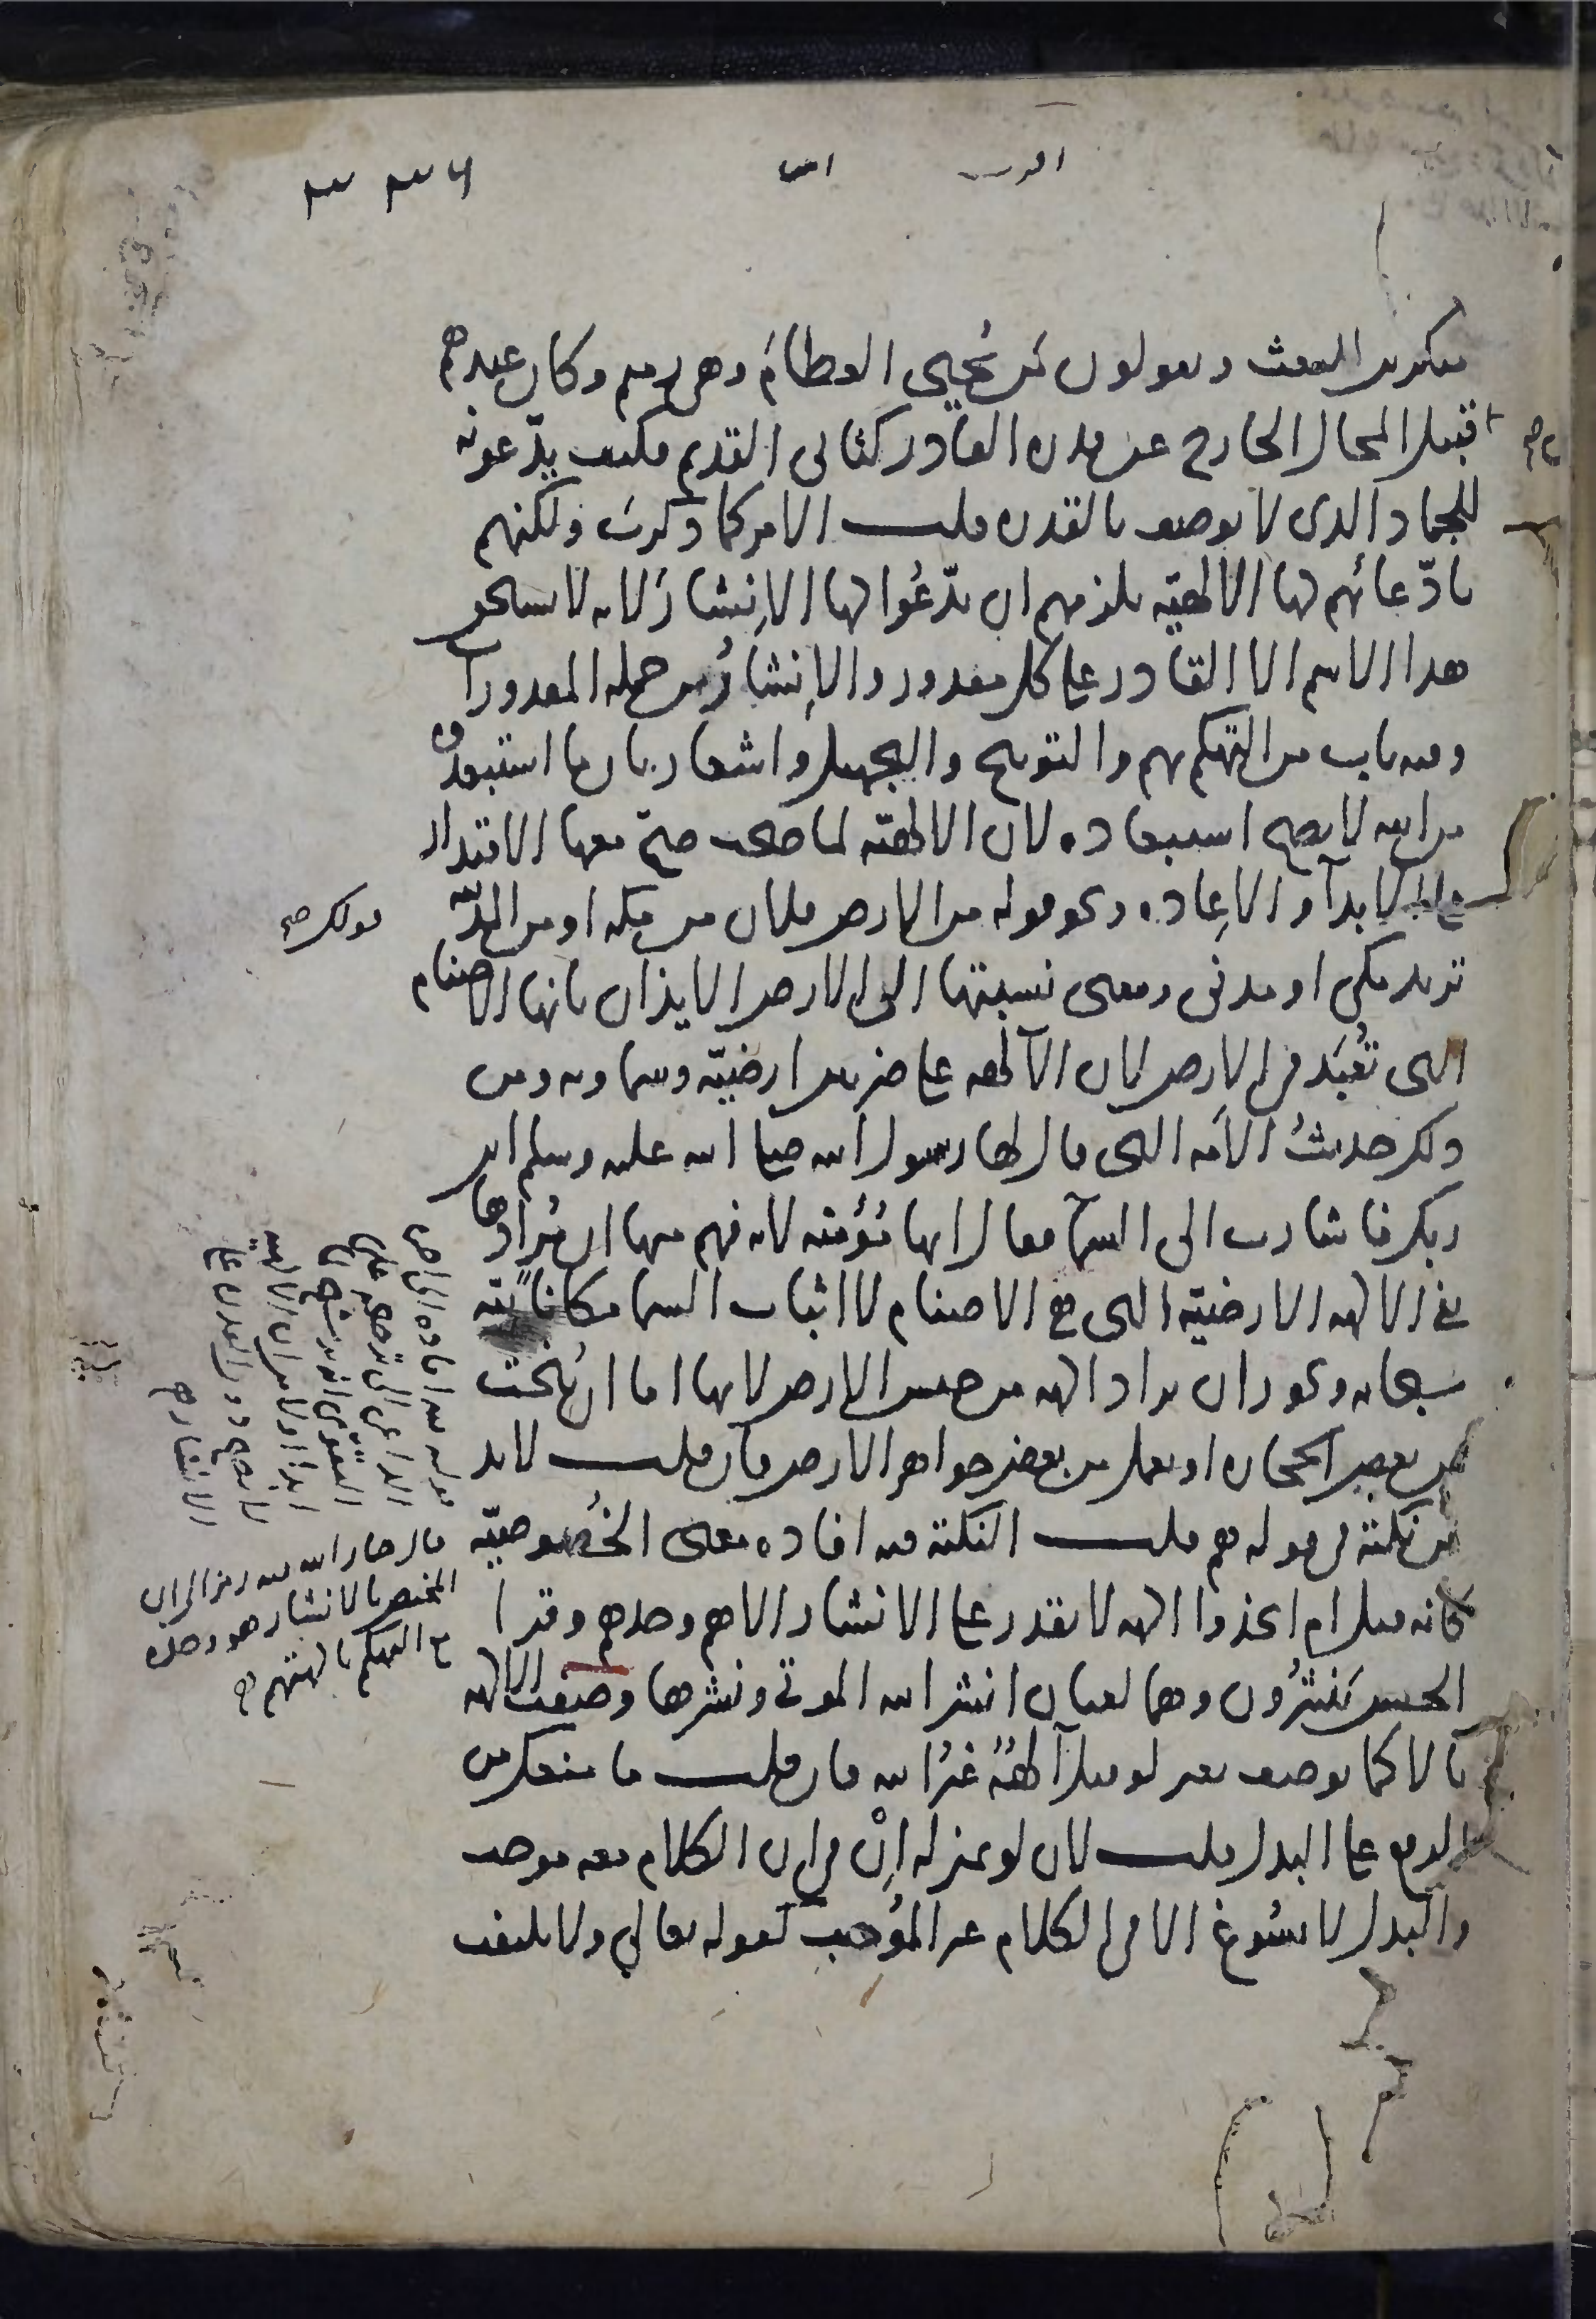 منكرين للبعث ويقولون من يُحيي العظامَ وهي رميم وكان عندهم
قبيل المحال الخارج عن قدره القادر كثاني القديم فكيف يدّعونه
للجماد الذي لا يوصف بالقدره قلت الامر كما ذكرتَ ولكنهم
بادّعائهم لها الالهيّه يلزمهم ان يدّعُوا لها الاِنشارَ لانه لا يستحق
هذا الاسم الا القادر على كل مقدور والاِنشارُ من جمله المقدورات
وفيه باب من التهكم بهم والتوبيخ والتجهيل واشعار بان ما استبعدوه
من الله لا يصح استبعاده لان الالهيّه لما صحت صحّ معها الاقتدار
على الابدآ والاِعاده ونحو قوله من الارض قولك فلان من مكه او من المدينه
تريد مكي او مدني ومعنى نسبتها الى الارض الايذان بانها الاصنام
التي تُعبَد في الارض لان الآلهه على ضربين ارضيّه وسماويه ومن
ذلك حديثُ الاَمه التي قال لها رسول الله صلى الله عليه وسلم اين
ربك فاشارت الى السمآ فقال انها مُؤمنه لانه فهم منها ان مُرادها
نفي الالهه الارضيّه التي هي الاصنام لا اثبات السما مكانا لله
سبحانه ويجوز ان يراد الهه من جنس الارض لانها اما ان تُنحت
من بعض الحجاره او تعمل من بعض جواهر الارض فان قلت لابد
من نكتة في قوله هم قلت النكتة فيه افاده معنى الخُصوصيّه
كانه قيل ام اتخذوا الهه لا يقدر على الانشار الا هم وحدهم وقرا
الحسن يَنشُرُون وهما لغتان انشر الله الموتى ونشرها وصفت الالهه
بالا كما توصف بغير لو قيل آلهةٌ غيرُ الله فان قلت ما منعك من
الرفع على البدل قلت لان لو بمنزله اِنْ في ان الكلام معه موجب
والبدل لا يسُوغ الا في الكلام غير المُوجب كقوله تعالي ولا يلتفت
قال جار الله فيه رمز الى ان
المختص بالانشار هو وحده
مع التهكم بالهتهم